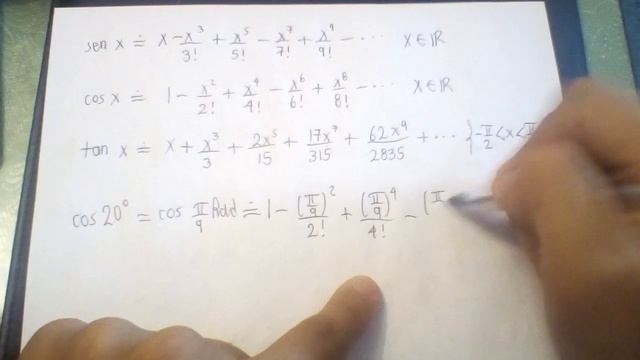 sen x ≐ x - x³/3! + x⁵/5! - x⁷/7! + x⁹/9! - ⋯ x ∈ ℝ
cos x ≐ 1 - x²/2! + x⁴/4! - x⁶/6! + x⁸/8! - ⋯ x ∈ ℝ
tan x ≐ x + x³/3 + 2x⁵/15 + 17x⁷/315 + 62x⁹/2835 + ⋯ { -π/2 < x < π
cos 20° = cos π/9 Rad ≐ 1 - (π/9)²/2! + (π/9)⁴/4! - (π